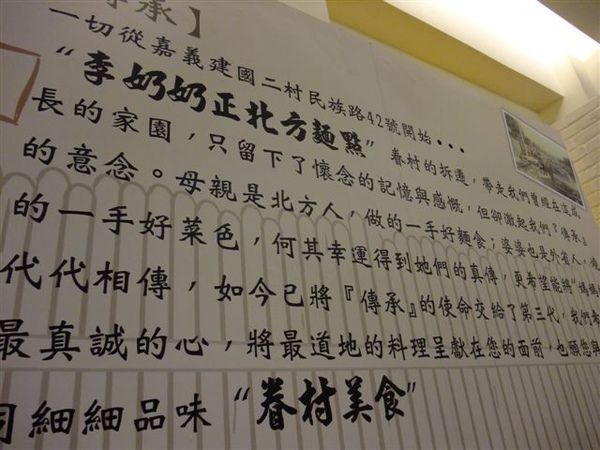 承】
一切從嘉義建國二村民族路42號開始...
“李奶奶正北方麵點”眷村的拆遷，帶走我們曾經在這成
長的家園，只留下了懷念的記憶與感慨，但卻激起我們『傳承』
的意念。母親是北方人，做的一手好麵食；婆婆也是外省人，燒
的一手好菜色，何其幸運得到她們的真傳，更希望能將“媽媽
代代相傳，如今已將『傳承』的使命交給了第三代，我們希
最真誠的心，將最道地的料理呈獻在您的面前，也願您與
同細細品味“眷村美食”